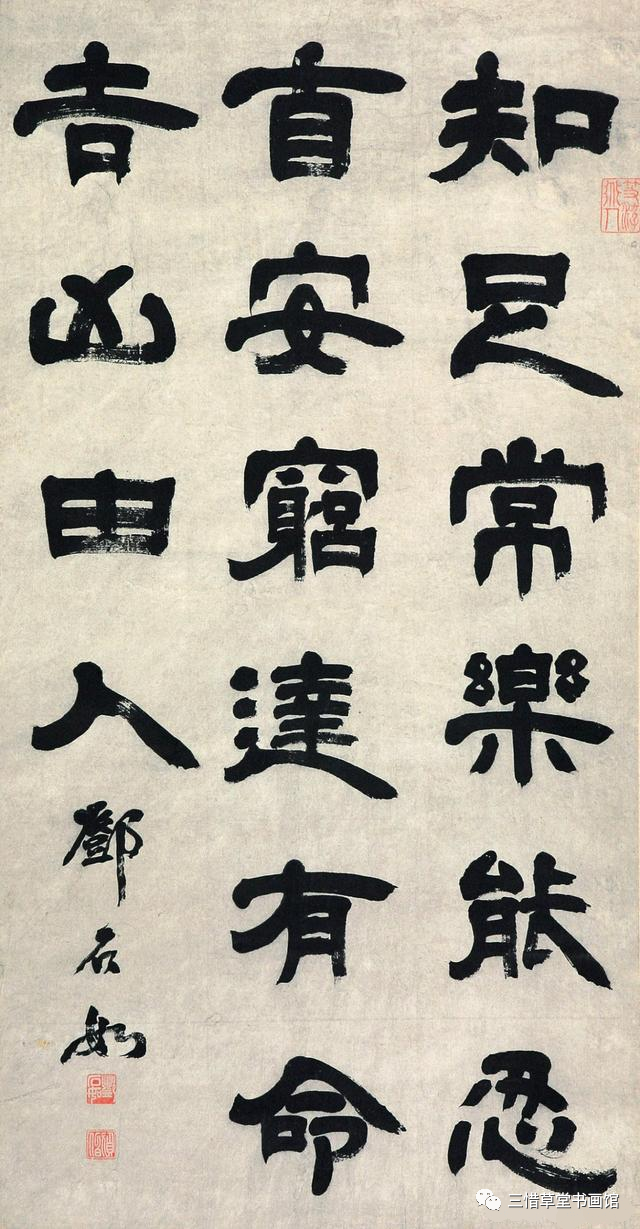 知足常樂能忍
自安竆達有命
吉凶由人
鄧石如
三惜草堂书画馆